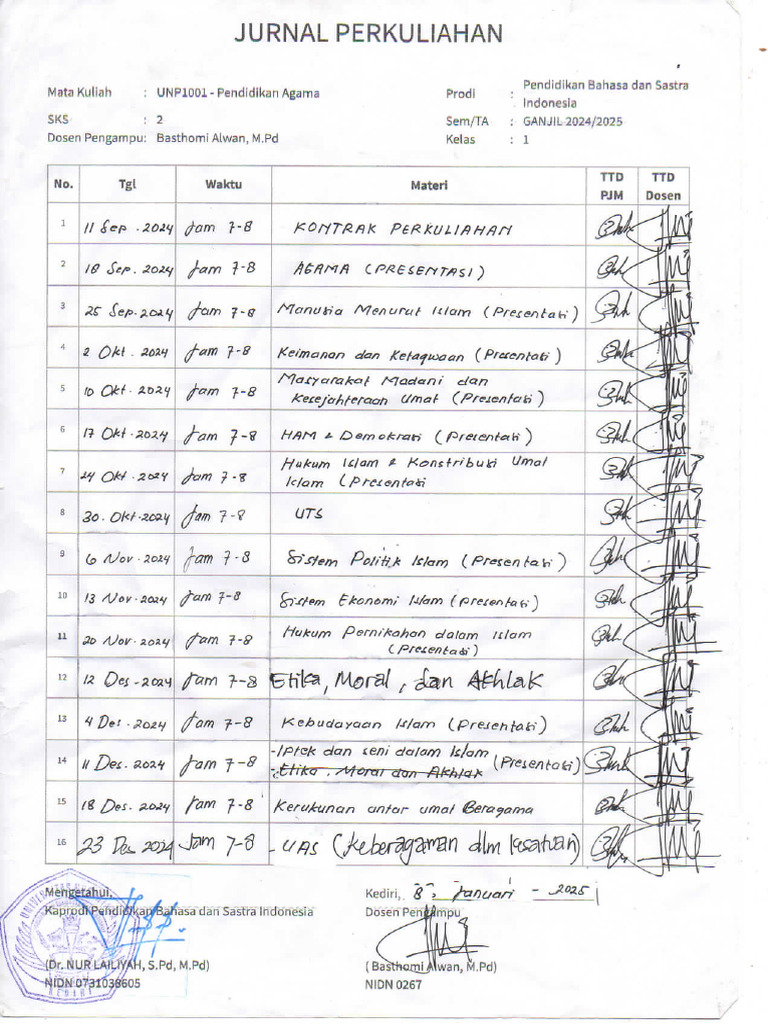 JURNAL PERKULIAHAN
Mata Kuliah : UNP1001 - Pendidikan Agama
Prodi : Pendidikan Bahasa dan Sastra Indonesia
SKS : 2
Sem/TA : GANJIL 2024/2025
Dosen Pengampu: Basthomi Alwan, M.Pd
Kelas : 1
No. Tgl Waktu Materi TTD PJM TTD Dosen
1 11 Sep. 2024 Jam 7-8 KONTRAK PERKULIAHAN
2 18 Sep. 2024 Jam 7-8 AGAMA (PRESENTASI)
3 25 Sep. 2024 Jam 7-8 Manusia Menurut Islam (Presentasi)
4 2 Okt. 2024 Jam 7-8 Keimanan dan Ketaqwaan (Presentasi)
5 10 Okt. 2024 Jam 7-8 Masyarakat Madani dan
Kesejahteraan Umat (Presentasi)
6 17 Okt. 2024 Jam 7-8 HAM & Demokrasi (Presentasi)
7 24 Okt. 2024 Jam 7-8 Hukum Islam & Konstribusi Umat
Islam (Presentasi
8 30. Okt. 2024 Jam 7-8 UTS
9 6 Nov. 2024 Jam 7-8 Sistem Politik Islam (Presentasi)
10 13 Nov. 2024 Jam 7-8 Sistem Ekonomi Islam (Presentasi)
11 20 Nov. 2024 Jam 7-8 Hukum Pernikahan dalam Islam
(Presentasi)
12 12 Des - 2024 Jam 7-8 Etika, Moral, dan Akhlak
13 4 Des. 2024 Jam 7-8 Kebudayaan Islam (Presentasi)
14 11 Des. 2024 Jam 7-8 - Iptek dan seni dalam Islam (Presentasi)
- Etika, Moral dan Akhlak
15 18 Des. 2024 Jam 7-8 Kerukunan antar umat Beragama
16 23 Des 2024 Jam 7-8 - UAS (Keberagaman dlm kesatuan)
Mengetahui,
Kaprodi Pendidikan Bahasa dan Sastra Indonesia
Kediri, 8, Januari - 2025
Dosen Pengampu
(Dr. NUR LAILIYAH, S.Pd, M.Pd)
NIDN 0731038605
( Basthomi Alwan, M.Pd)
NIDN 0267
KEDIRI